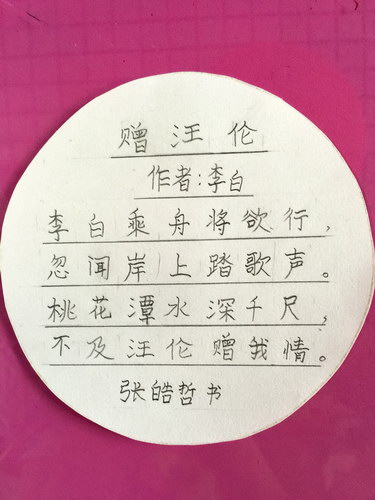 赠汪伦
作者:李白
李白乘舟将欲行,
忽闻岸上踏歌声。
桃花潭水深千尺,
不及汪伦赠我情。
张皓哲书